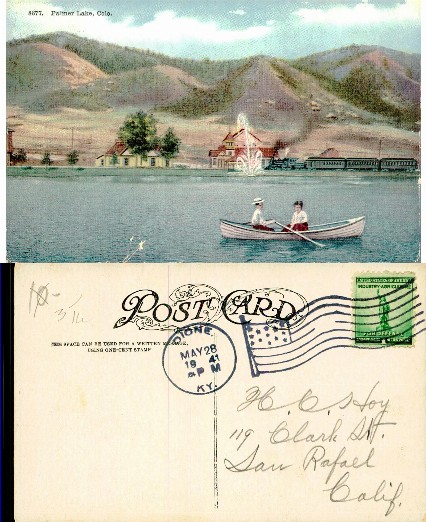 8677. Palmer Lake, Colo.
10-
3/16
POST CARD
THIS SPACE CAN BE USED FOR A WRITTEN MESSAGE,
USING ONE-CENT STAMP
IONE
MAY 28
19 41
PM
KY.
UNITED STATES OF AMERICA
INDUSTRY-AGRICULTURE
FOR DEFENSE
H. C. Hoy
119 Clark St.
San Rafael
Calif.